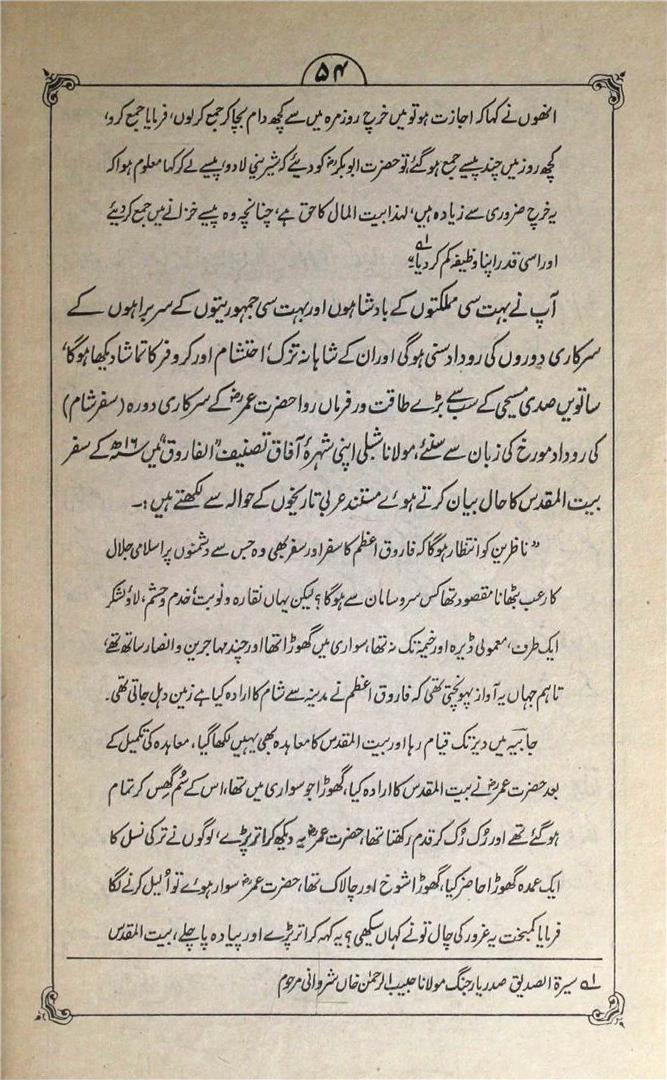 ۵۴
انھوں نے کہا کہ اجازت ہو تو میں خرچ روزمرہ میں سے کچھ دام بچا کر جمع کر لوں، فرمایا جمع کرو،
کچھ روز میں چند پیسے جمع ہو گئے تو حضرت ابو بکرؓ کو دیئے کہ شیرینی لا دو، پیسے لے کر کہا معلوم ہوا کہ
یہ خرچ ضروری سے زیادہ ہیں، لہذا بیت المال کا حق ہے، چنانچہ وہ پیسے خزانے میں جمع کر دیئے
اور اسی قدر اپنا وظیفہ کم کر دیا۔"؂۱
آپ نے بہت سی مملکتوں کے بادشاہوں اور بہت سی جمہوریتوں کے سربراہوں کے
سرکاری دوروں کی روداد سنی ہوگی اور ان کے شاہانہ تزک، احتشام اور کروفر کا تماشا دیکھا ہوگا،
ساتویں صدی مسیحی کے سب سے بڑے طاقت ور فرماں روا حضرت عمرؓ کے سرکاری دورہ (سفر شام)
کی روداد مورخ کی زبان سے سنئے، مولانا شبلی اپنی شہرۂ آفاق تصنیف "الفاروق" میں ۱۶ھ کے سفر
بیت المقدس کا حال بیان کرتے ہوئے مستند عربی تاریخوں کے حوالہ سے لکھتے ہیں :۔
"ناظرین کو انتظار ہوگا کہ فاروق اعظم کا سفر اور سفر بھی وہ جس سے دشمنوں پر اسلامی جلال
کا رعب بٹھانا مقصود تھا کس سروسامان سے ہوگا؟ لیکن یہاں نقارہ و نوبت، خدم و حشم، لاؤ لشکر
ایک طرف، معمولی ڈیرہ اور خیمہ تک نہ تھا، سواری میں گھوڑا تھا اور چند مہاجرین و انصار ساتھ تھے،
تاہم جہاں یہ آواز پہونچتی تھی کہ فاروق اعظم نے مدینہ سے شام کا ارادہ کیا ہے زمین دہل جاتی تھی۔
جابیہ میں دیر تک قیام رہا اور بیت المقدس کا معاہدہ بھی یہیں لکھا گیا، معاہدہ کی تکمیل کے
بعد حضرت عمرؓ نے بیت المقدس کا ارادہ کیا، گھوڑا جو سواری میں تھا، اس کے سُم گھس کر تمام
ہو گئے تھے اور رُک رُک کر قدم رکھتا تھا، حضرت عمرؓ یہ دیکھ کر اتر پڑے، لوگوں نے ترکی نسل کا
ایک عمدہ گھوڑا حاضر کیا، گھوڑا شوخ اور چالاک تھا، حضرت عمرؓ سوار ہوئے تو اُلیل کرنے لگا
فرمایا کمبخت یہ غرور کی چال تو نے کہاں سیکھی؟ یہ کہہ کر اتر پڑے اور پیادہ پا چلے، بیت المقدس
؂۱ سیرۃ الصدیق صدر یار جنگ مولانا حبیب الرحمٰن خاں شروانی مرحوم